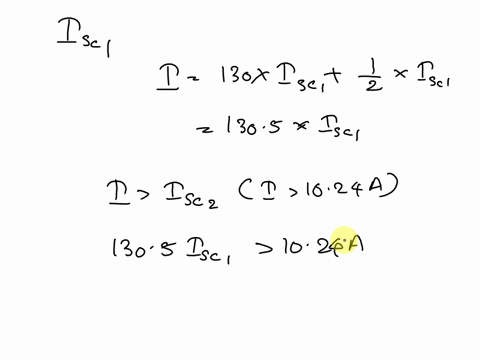 I_sc1
I = 130 × I_sc1 + 1/2 × I_sc1
= 130.5 × I_sc1
I > I_sc2 (I > 10.24A)
130.5 I_sc1 > 10.24A